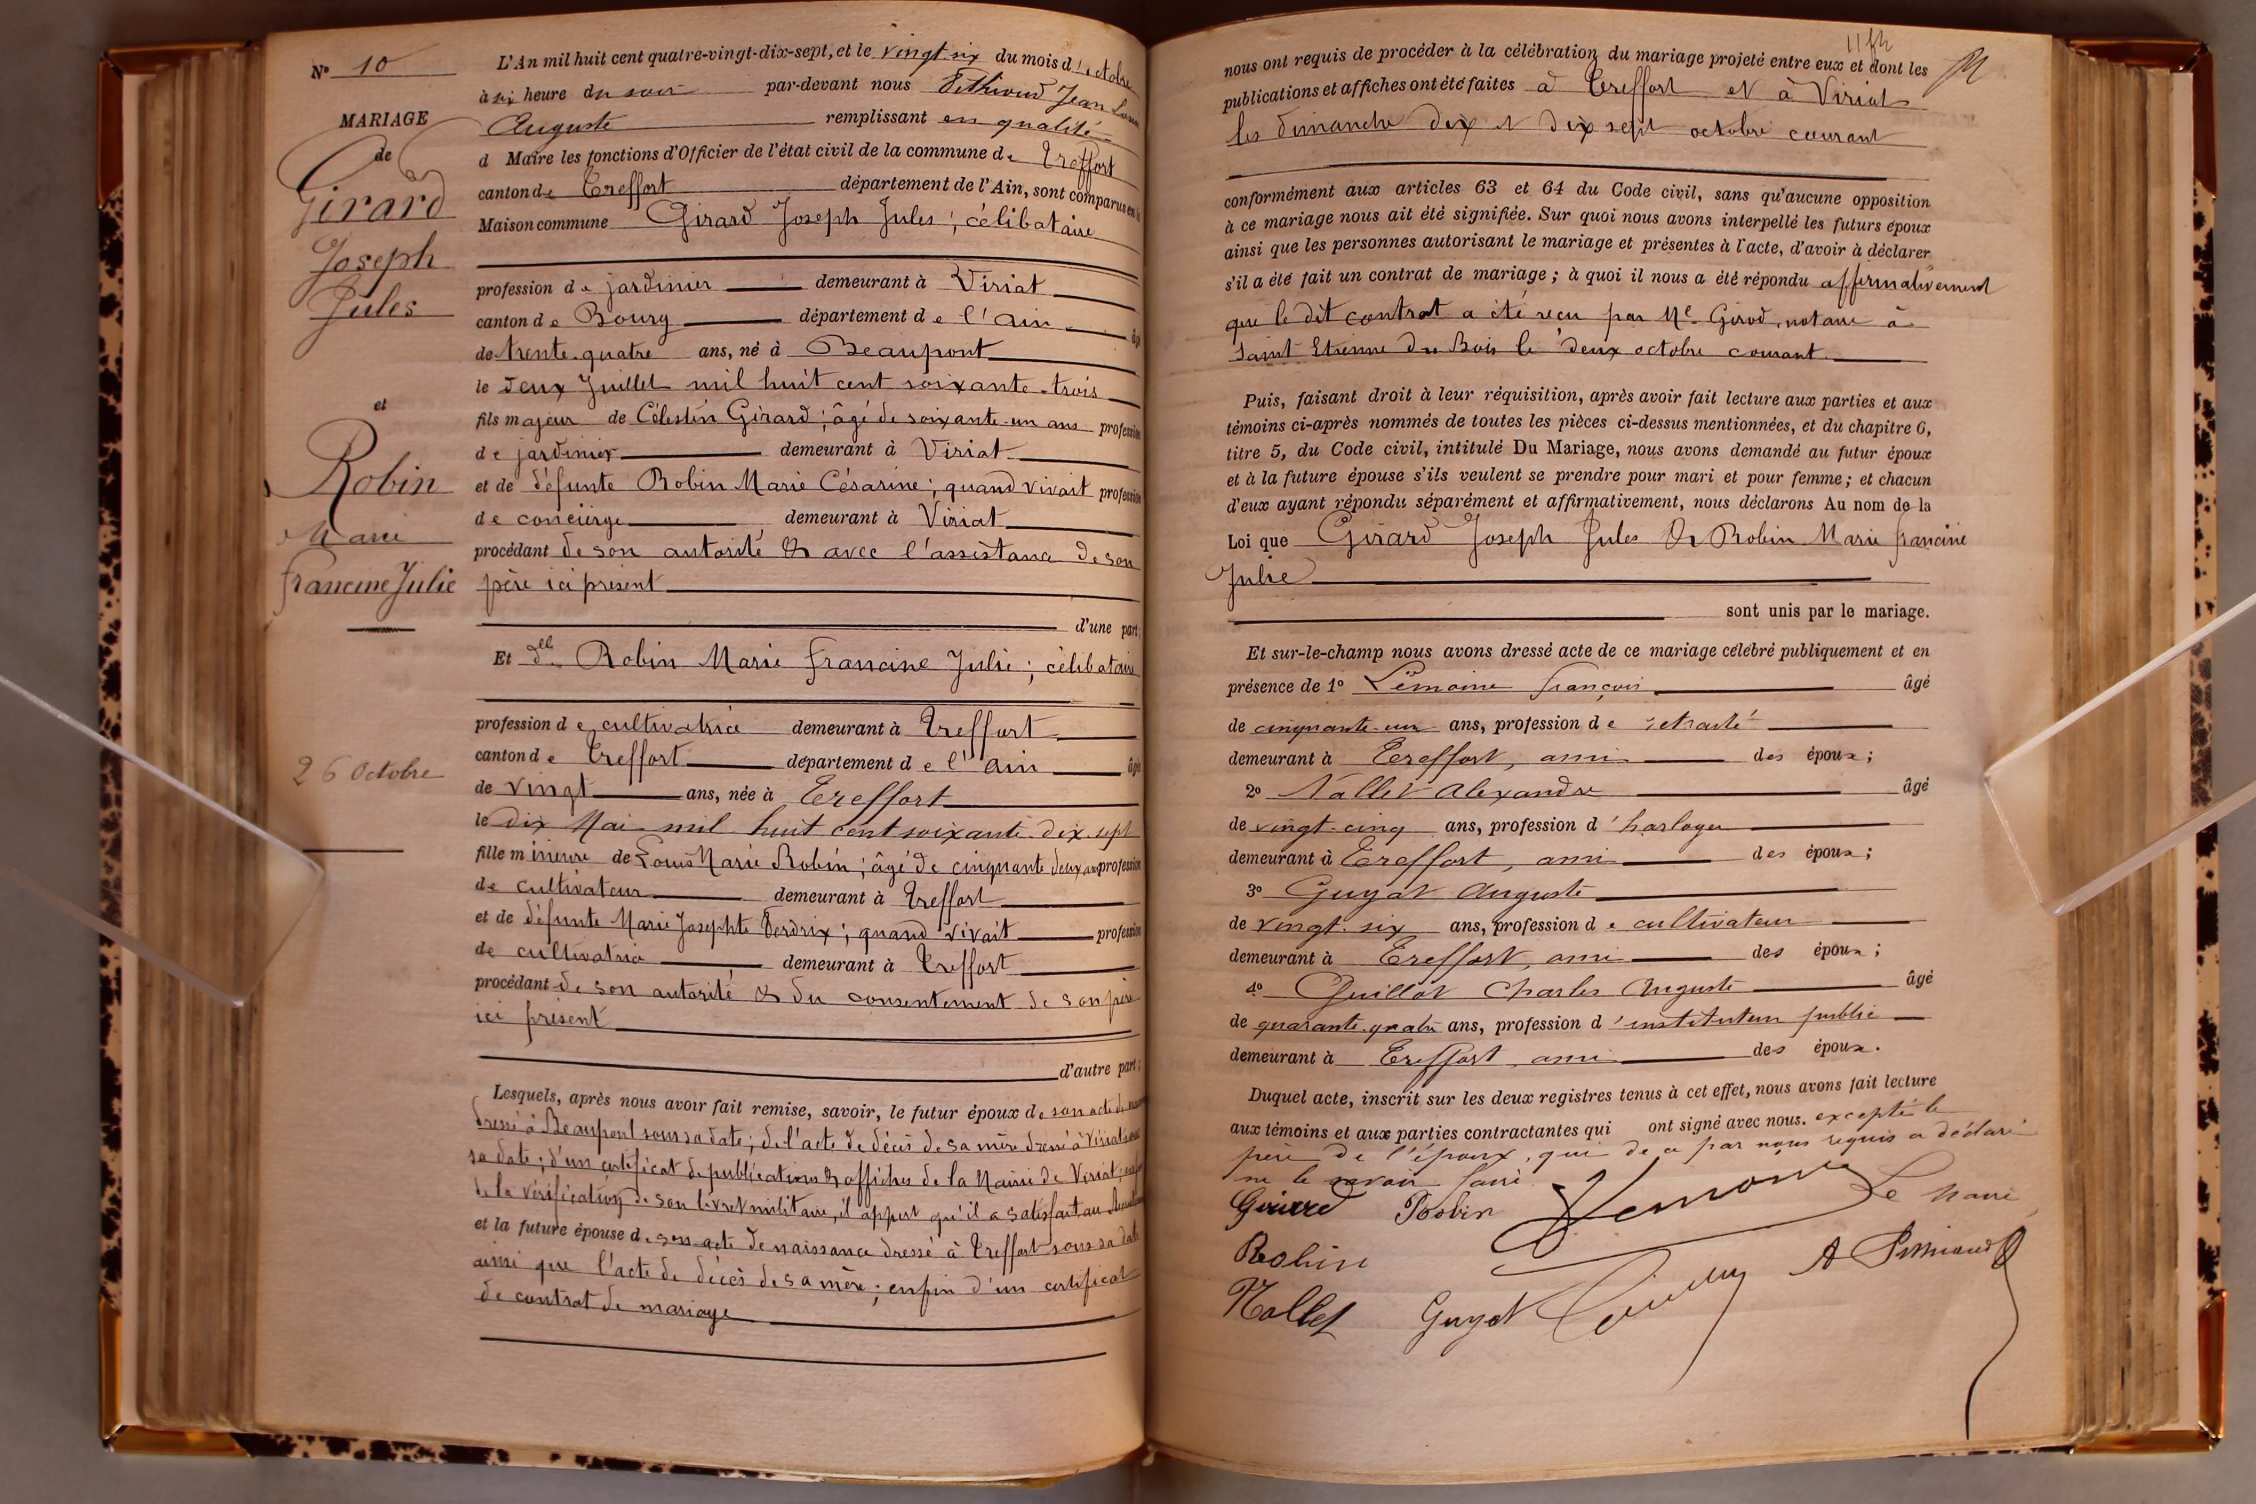 N° 10
MARIAGE
de
Girard
Joseph
Jules
et
Robin
Marie
francine Julie
26 Octobre
L'An mil huit cent quatre-vingt-dix-sept, et le vingt-six du mois d'octobre
à six heure du soir par-devant nous Jean Louis
Auguste remplissant en qualité
d Maire les fonctions d'Officier de l'état civil de la commune de Treffort
canton de Treffort département de l'Ain, sont comparus en la
Maison commune Girard Joseph Jules ; célibataire
profession de jardinier demeurant à Viriat
canton de Bourg département de l'Ain âgé
de trente-quatre ans, né à Beaupont
le deux Juillet mil huit cent soixante-trois
fils majeur de Célestin Girard ; âgé de soixante-un ans profession
de jardinier demeurant à Viriat
et de défunte Robin Marie Césarine ; quand vivait profession
de concierge demeurant à Viriat
procédant de son autorité & avec l'assistance de son
père ici présent
d'une part ;
Et dlle Robin Marie francine Julie ; célibataire
profession de cultivatrice demeurant à Treffort
canton de Treffort département de l'Ain âgé
de vingt ans, née à Treffort
le dix Mai mil huit cent soixante-dix-sept
fille mineure de Louis Marie Robin ; âgé de cinquante deux ans profession
de cultivateur demeurant à Treffort
et de défunte Marie Josephte Perdrix ; quand vivait profession
de cultivatrice demeurant à Treffort
procédant de son autorité & du consentement de son père
ici présent
d'autre part ;
Lesquels, après nous avoir fait remise, savoir, le futur époux de son acte de
dressé à Beaupont sous sa date ; de l'acte de décès de sa mère dressé à Viriat sous
sa date ; d'un certificat de publications & affiches de la Mairie de Viriat ; enfin
de la vérification de son livret militaire, il appert qu'il a satisfait au
et la future épouse de son acte de naissance dressé à Treffort sous sa date
ainsi que l'acte de décès de sa mère ; enfin d'un certificat
de contrat de mariage
nous ont requis de procéder à la célébration du mariage projeté entre eux et dont les
publications et affiches ont été faites à Treffort et à Viriat
les dimanche dix et dix sept octobre courant
conformément aux articles 63 et 64 du Code civil, sans qu'aucune opposition
à ce mariage nous ait été signifiée. Sur quoi nous avons interpellé les futurs époux
ainsi que les personnes autorisant le mariage et présentes à l'acte, d'avoir à déclarer
s'il a été fait un contrat de mariage ; à quoi il nous a été répondu affirmativement
que le dit contrat a été reçu par Me Girod, notaire à
Saint Etienne du Bois le deux octobre courant.
Puis, faisant droit à leur réquisition, après avoir fait lecture aux parties et aux
témoins ci-après nommés de toutes les pièces ci-dessus mentionnées, et du chapitre 6,
titre 5, du Code civil, intitulé Du Mariage, nous avons demandé au futur époux
et à la future épouse s'ils veulent se prendre pour mari et pour femme ; et chacun
d'eux ayant répondu séparément et affirmativement, nous déclarons Au nom de la
Loi que Girard Joseph Jules & Robin Marie francine
Julie
sont unis par le mariage.
Et sur-le-champ nous avons dressé acte de ce mariage célébré publiquement et en
présence de 1° Lemoine françois âgé
de cinquante-un ans, profession de retraité
demeurant à Treffort, ami des époux ;
2° Nallet Alexandre âgé
de vingt-cinq ans, profession d'horloger
demeurant à Treffort, ami des époux ;
3° Guyot Auguste
de vingt-six ans, profession de cultivateur
demeurant à Treffort, ami des époux ;
4° Guillot Charles Auguste âgé
de quarante-quatre ans, profession d'instituteur public
demeurant à Treffort ami des époux.
Duquel acte, inscrit sur les deux registres tenus à cet effet, nous avons fait lecture
aux témoins et aux parties contractantes qui ont signé avec nous. excepté le
père de l'époux, qui de ce par nous requis a déclaré
ne le savoir faire.
Girard Robin Lemoine Le Maire
Robin
Nallet Guyot